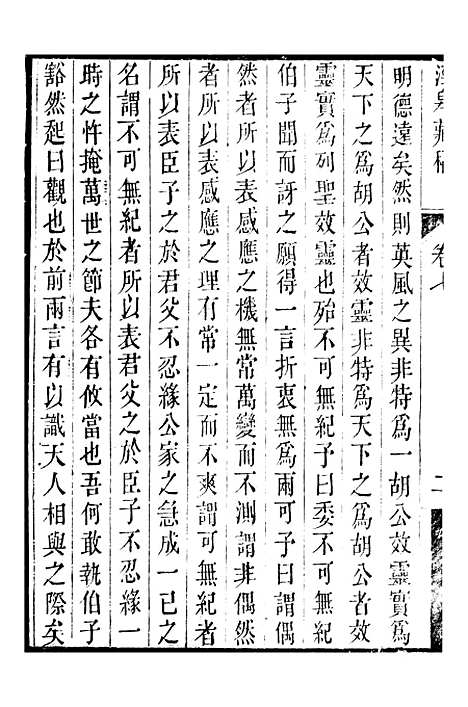 明德遠矣然則英風之異非特爲一胡公效靈實爲
天下之爲胡公者效靈非特爲天下之爲胡公者效
靈實爲列聖效靈也殆不可無紀予曰委不可無紀
伯子聞而訝之願得一言折衷無爲兩可曰謂偶
然者所以表感應之機無常萬變而不測謂非偶然
者所以表感應之理有常一定而不爽謂可無紀者
所以表臣子之於君父不忍緣公家之急成一已之
名謂不可無紀者所以表君父之於臣子不忍緣一
時之忤掩萬世之節夫各有攸當也吾何敢執伯子
豁然起曰觀也於前兩言有以識天人相與之際矣
卷七
二